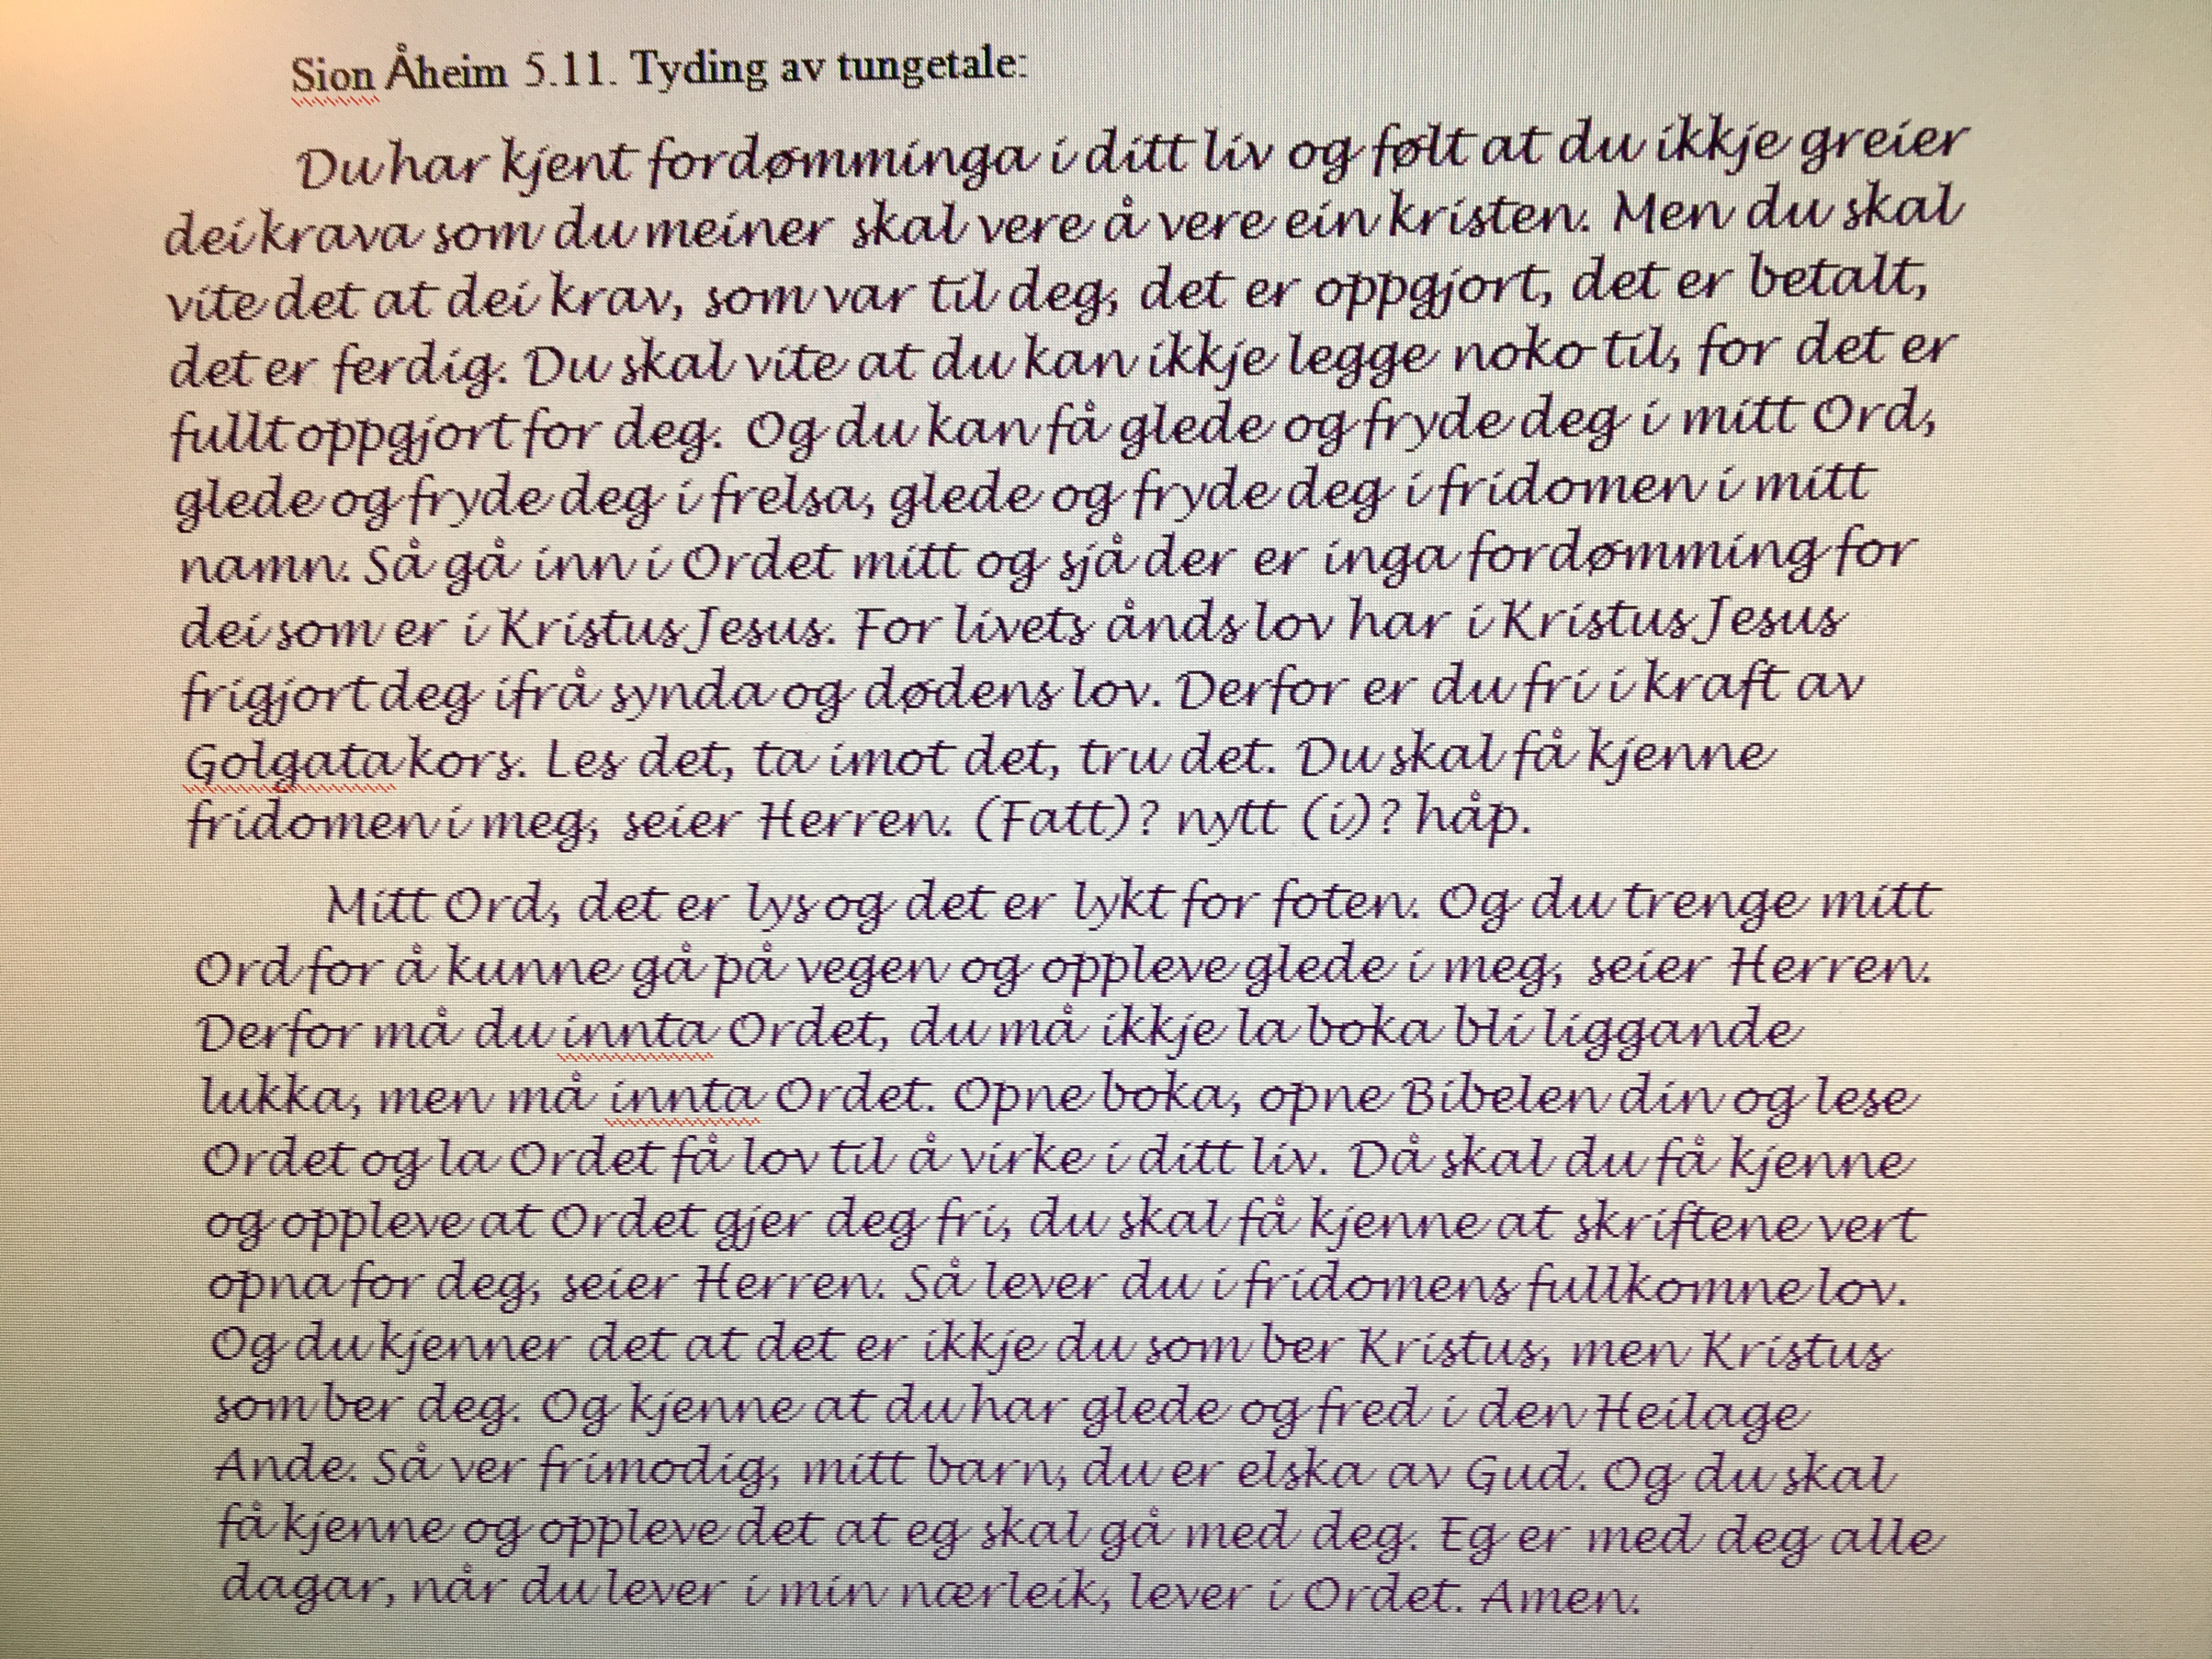 Sion Åheim 5.11. Tyding av tungetale:
Du har kjent fordømminga i ditt liv og følt at du ikkje greier
dei krava som du meiner skal vere å vere ein kristen. Men du skal
vite det at dei krav, som var til deg, det er oppgjort, det er betalt,
det er ferdig. Du skal vite at du kan ikkje legge noko til, for det er
fullt oppgjort for deg. Og du kan få glede og fryde deg i mitt Ord,
glede og fryde deg i frelsa, glede og fryde deg i fridomen i mitt
namn. Så gå inn i Ordet mitt og sjå der er inga fordømming for
dei som er i Kristus Jesus. For livets ånds lov har i Kristus Jesus
frigjort deg ifrå synda og dødens lov. Derfor er du fri i kraft av
Golgata kors. Les det, ta imot det, tru det. Du skal få kjenne
fridomen i meg, seier Herren. (Fatt)? nytt (i)? håp.
Mitt Ord, det er lys og det er lykt for foten. Og du trenge mitt
Ord for å kunne gå på vegen og oppleve glede i meg, seier Herren.
Derfor må du innta Ordet, du må ikkje la boka bli liggande
lukka, men må innta Ordet. Opne boka, opne Bibelen din og lese
Ordet og la Ordet få lov til å virke i ditt liv. Då skal du få kjenne
og oppleve at Ordet gjer deg fri, du skal få kjenne at skriftene vert
opna for deg, seier Herren. Så lever du i fridomens fullkomne lov.
Og du kjenner det at det er ikkje du som ber Kristus, men Kristus
som ber deg. Og kjenne at du har glede og fred i den Heilage
Ande. Så ver frimodig, mitt barn, du er elska av Gud. Og du skal
få kjenne og oppleve det at eg skal gå med deg. Eg er med deg alle
dagar, når du lever i min nærleik, lever i Ordet. Amen.